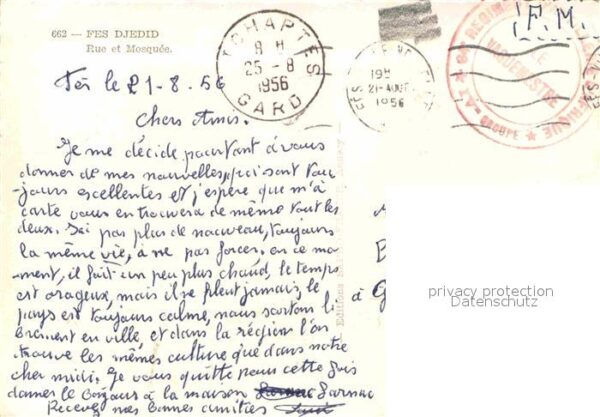 662 — FES DJEDID
Rue et Mosquée.
Fès le 21-8.56
Chers Amis.
Je me décide pourtant à vous
donner de mes nouvelles, qui sont tou-
jours excellentes et j'espère que m'a
carte vous en trouvera de même tout les
deux. Ici pas plus de nouveau, toujours
la même vie, à ne pas forcer. en ce mo-
ment, il fait un peu plus chaud, le temps
est orageux, mais il ne pleut jamais, le
pays est toujours calme, nous sortons li
brement en ville, et dans la région l'on
trouve les mêmes culture que dans notre
cher midi. Je vous quitte pour cette fois
donner le bonjour à la maison Larnac
Recevez mes bonnes amitiés
TCHAPTES
8 H
25-8
1956
GARD
19H
21-AOUT
1956
F.M.
VAGUEMESTRE
GROUPE
Editions
à
privacy protection
Datenschutz